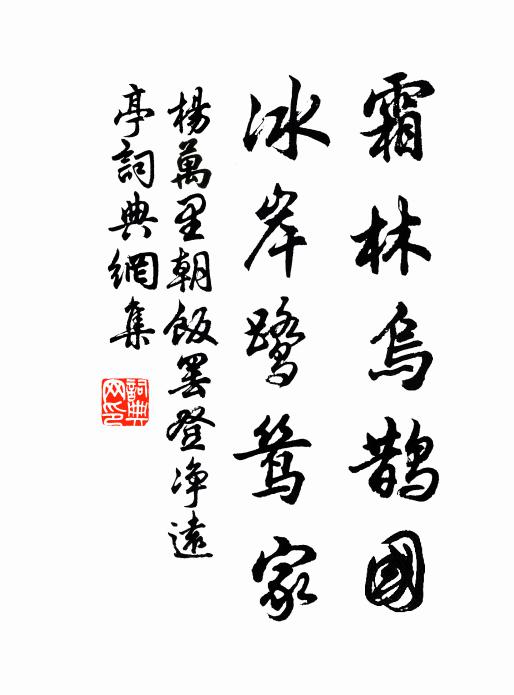 霜林烏鵲國
冰岸鷺鶖家
楊萬里朝飯罷登淨遠
亭詞典網集
詞典網印